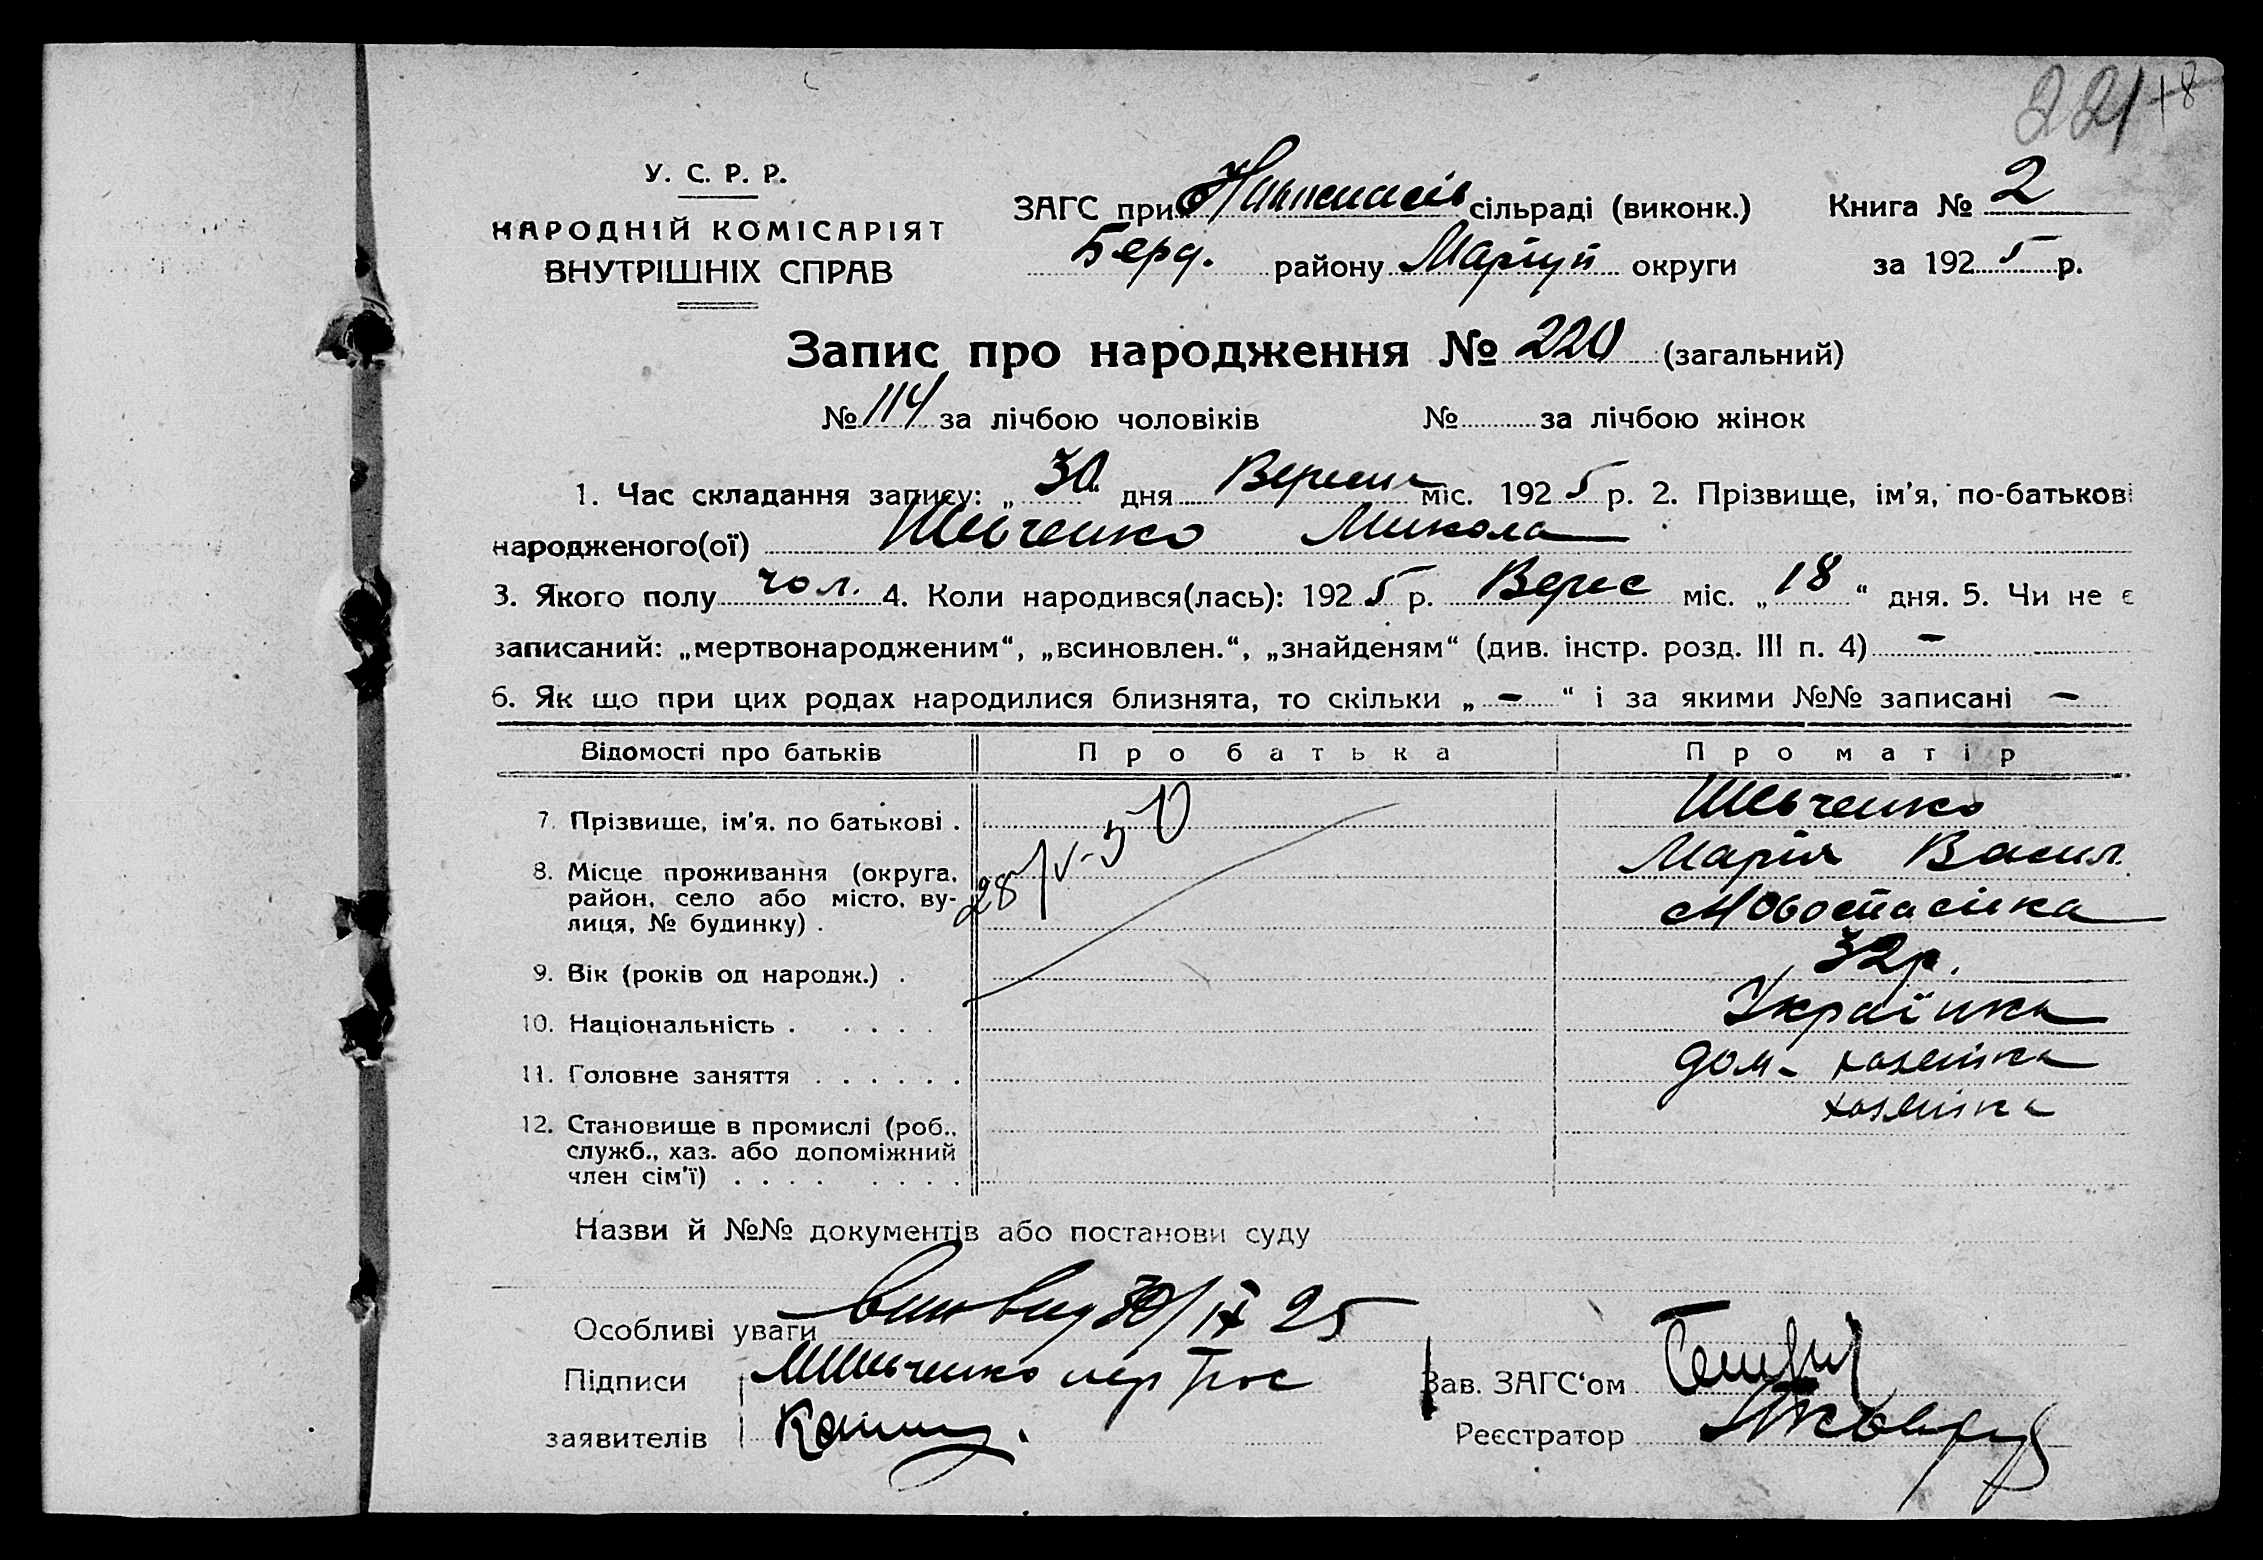 221 18
У. С. Р. Р.
НАРОДНІЙ КОМІСАРІЯТ
ВНУТРІШНІХ СПРАВ
ЗАГС при сільраді (виконк.)
Берд. району Маріуп округи
Книга № 2
за 1925 р.
Запис про народження № 220 (загальний)
№ 114 за лічбою чоловіків № за лічбою жінок
1. Час складання запису: „30“ дня Вересня міс. 1925 р. 2. Прізвище, ім'я, по-батькові
народженого(ої) Шевченко Микола
3. Якого полу чол. 4. Коли народився(лась): 1925 р. Верес міс. „18“ дня. 5. Чи не є
записаний: „мертвонародженим“, „всиновлен.“, „знайденям“ (див. інстр. розд. III п. 4) -
6. Як що при цих родах народилися близнята, то скільки „-“ і за якими №№ записані -
Відомості про батьків Про батька Про матір
7. Прізвище, ім'я, по батькові . Шевченко
Марія Васил.
8. Місце проживання (округа,
район, село або місто, ву-
лиця, № будинку) . Новоспасівка
28/V-50
9. Вік (років од народж.) . 32 р.
10. Національність . . . . . Українка
11. Головне заняття . . . . . . дом- хазяйка
12. Становище в промислі (роб., хазяйка
служб., хаз. або допоміжний
член сім'ї) . . . . . . . .
Назви й №№ документів або постанови суду
Особливі уваги 30/IX 25
Підписи МШевченко
заявителів
Зав. ЗАГС'ом
Реєстратор